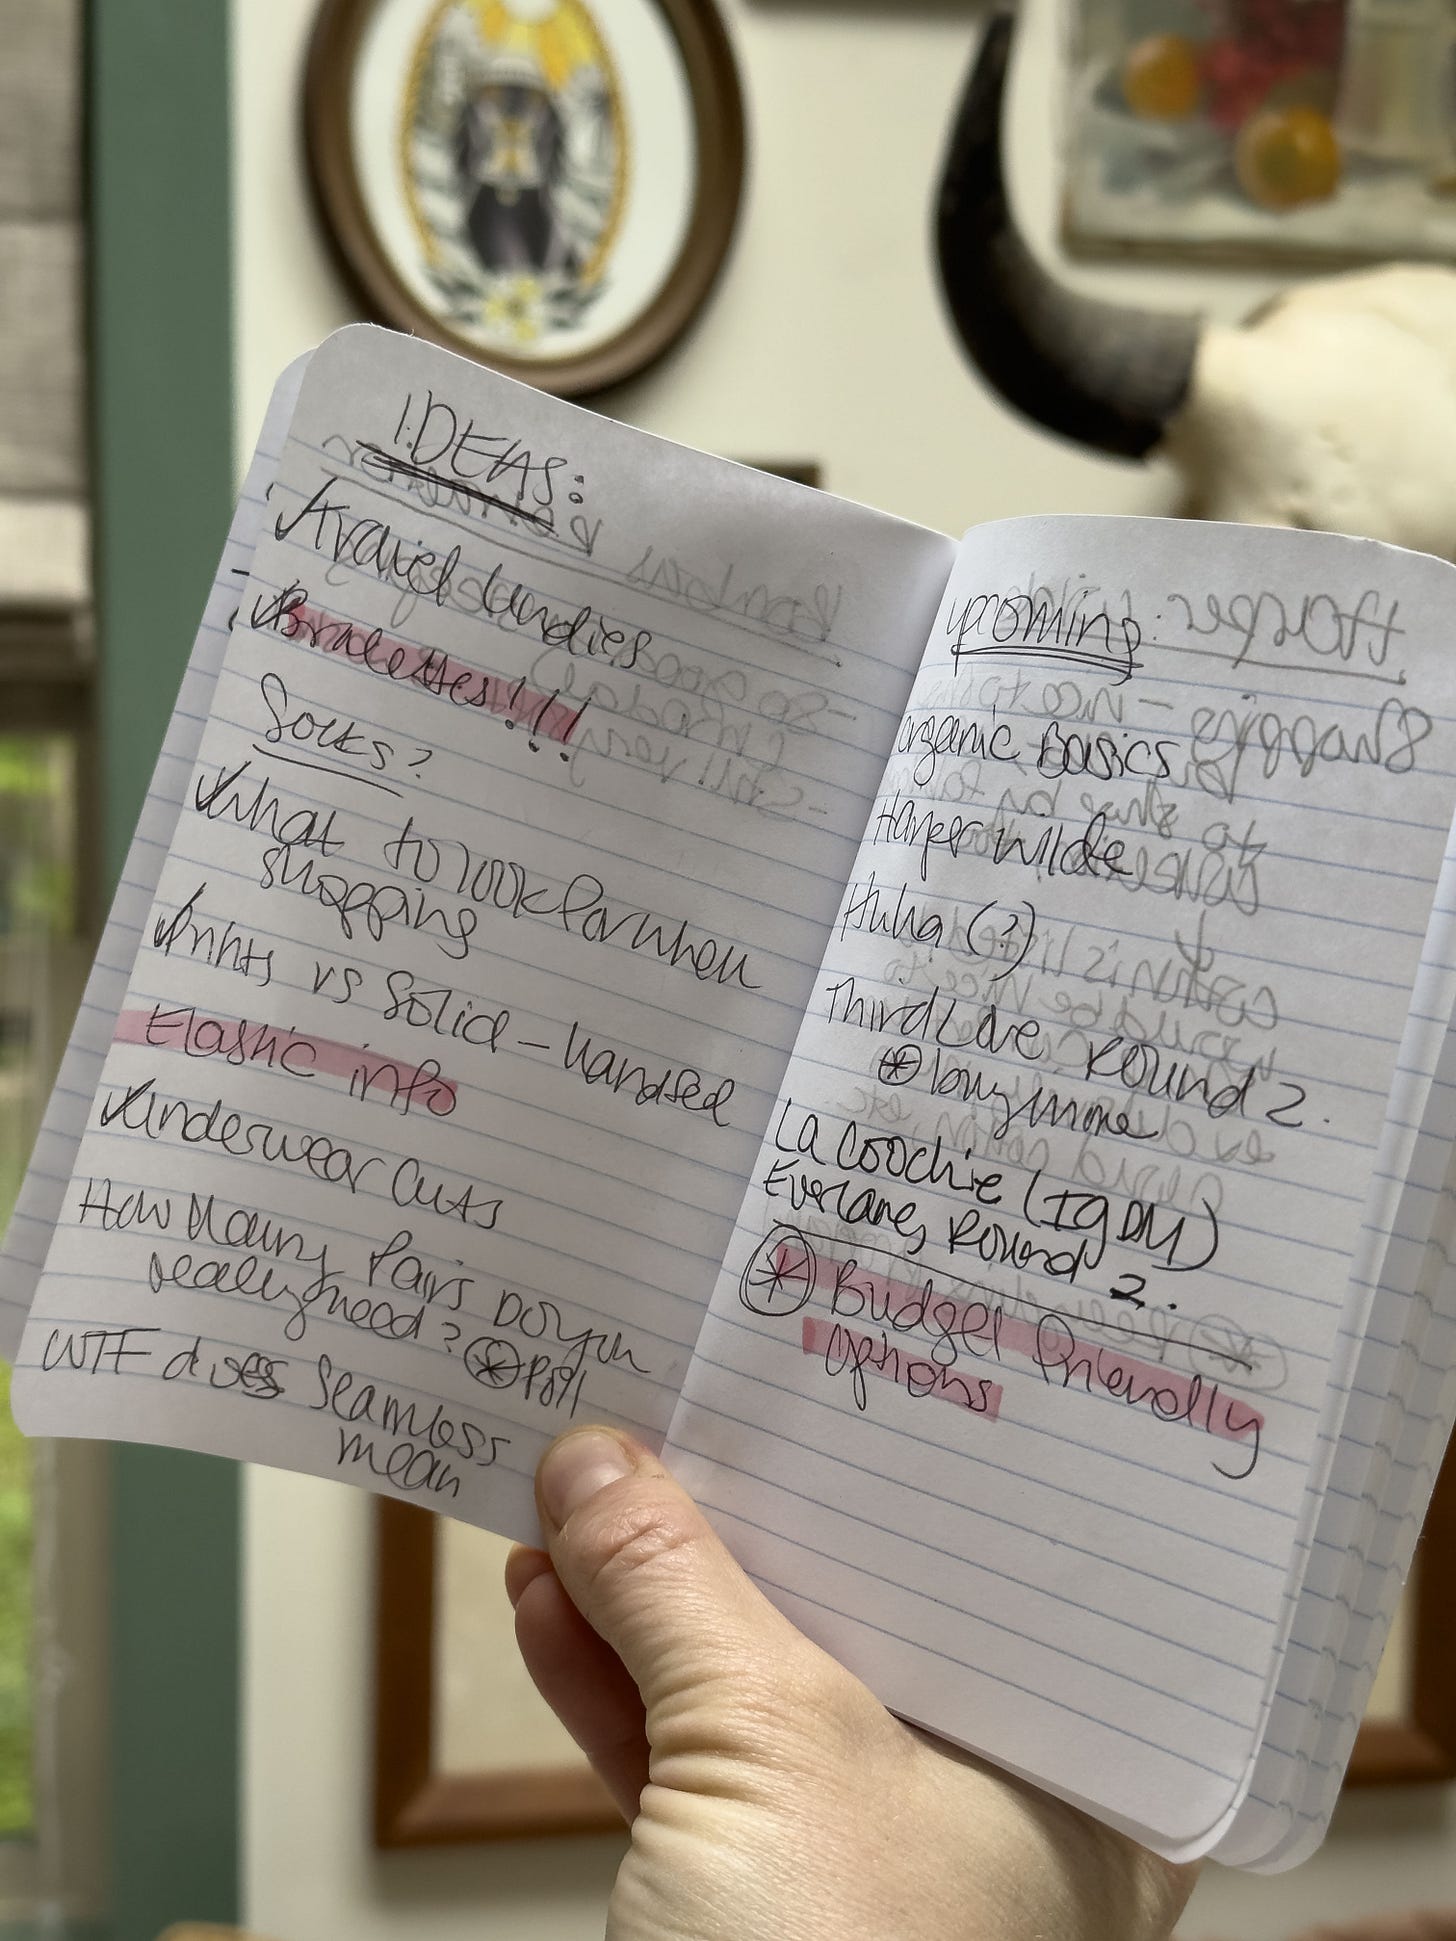 IDEAS:
Travel Undies
Bralettes!!!
Socks?
What to look for when
shopping
Prints vs Solid - handsed
Elastic info
Underwear Cuts
How Many Pairs Do you
really need? * Poll
WTF does Seamless
mean
upcoming:
Organic Basics
Harper Wilde
Huha (?)
ThirdLove Round 2.
* buy more
La Coochie (IG DM)
Everlane, Round 2.
* Budget friendly
options